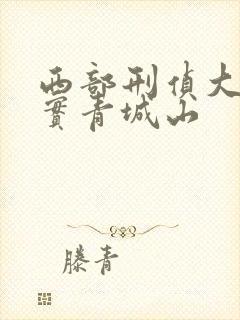 西部刑偵大
實青城山
滕青